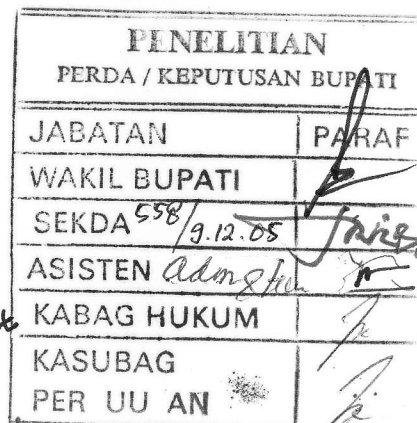 PENELITIAN
PERDA / KEPUTUSAN BUPATI
JABATAN PARAF
WAKIL BUPATI
SEKDA 558/9.12.05
ASISTEN
KABAG HUKUM
KASUBAG
PER UU AN